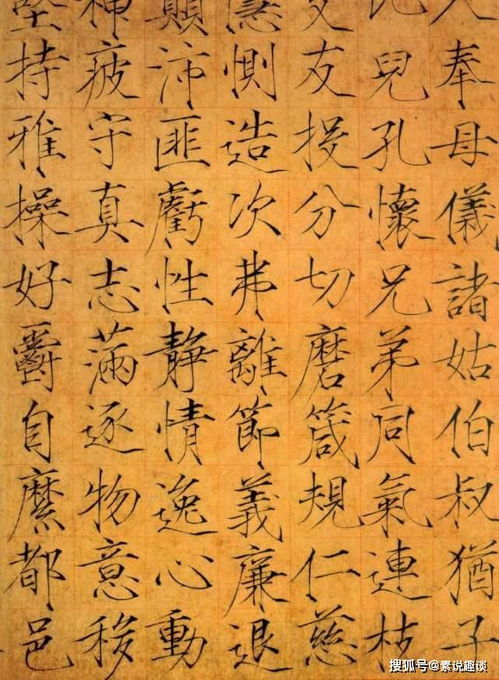 入奉母儀諸姑伯叔猶子
比兒孔懷兄弟同氣連枝
交友投分切磨箴規仁慈
隱惻造次弗離節義廉退
顛沛匪虧性靜情逸心動
神疲守真志滿逐物意移
堅持雅操好爵自縻都邑
搜狐号@素说趣谈